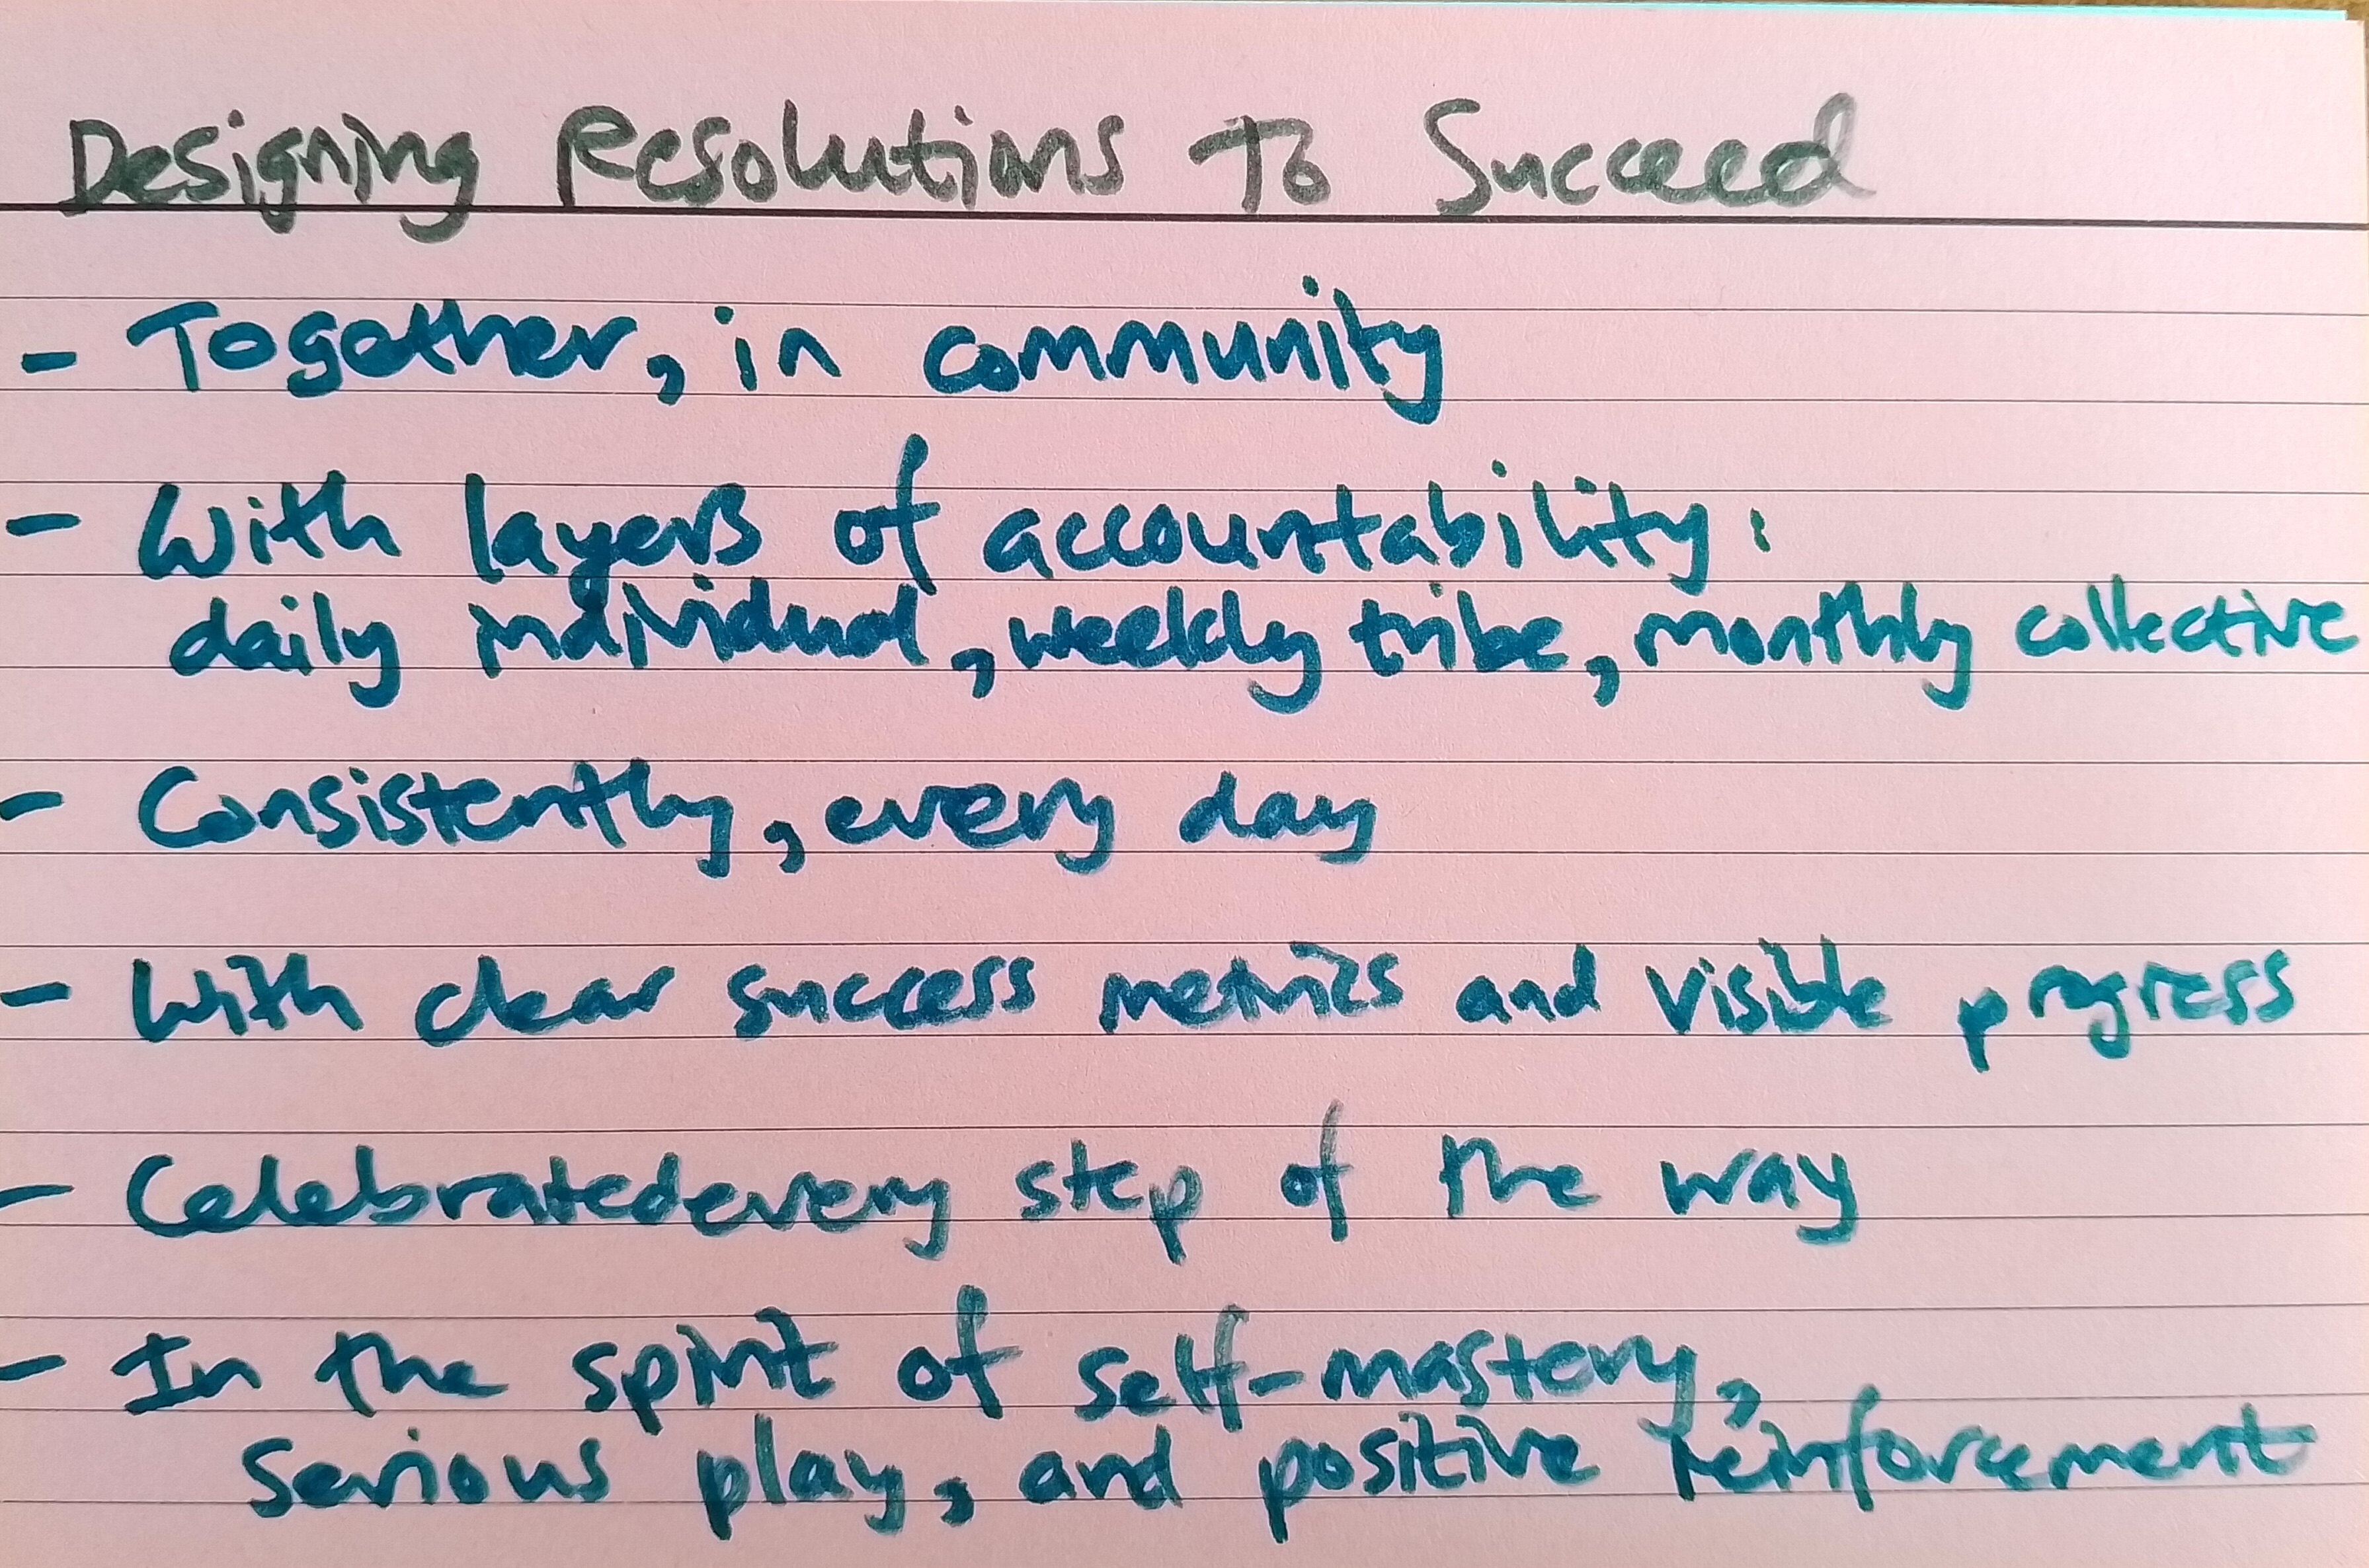 Designing Resolutions To Succeed
- Together, in community
- With layers of accountability:
daily individual, weekly tribe, monthly collective
- Consistently, every day
- With clear success metrics and visible progress
- Celebrated every step of the way
- In the spirit of self-mastery,
serious play, and positive reinforcement